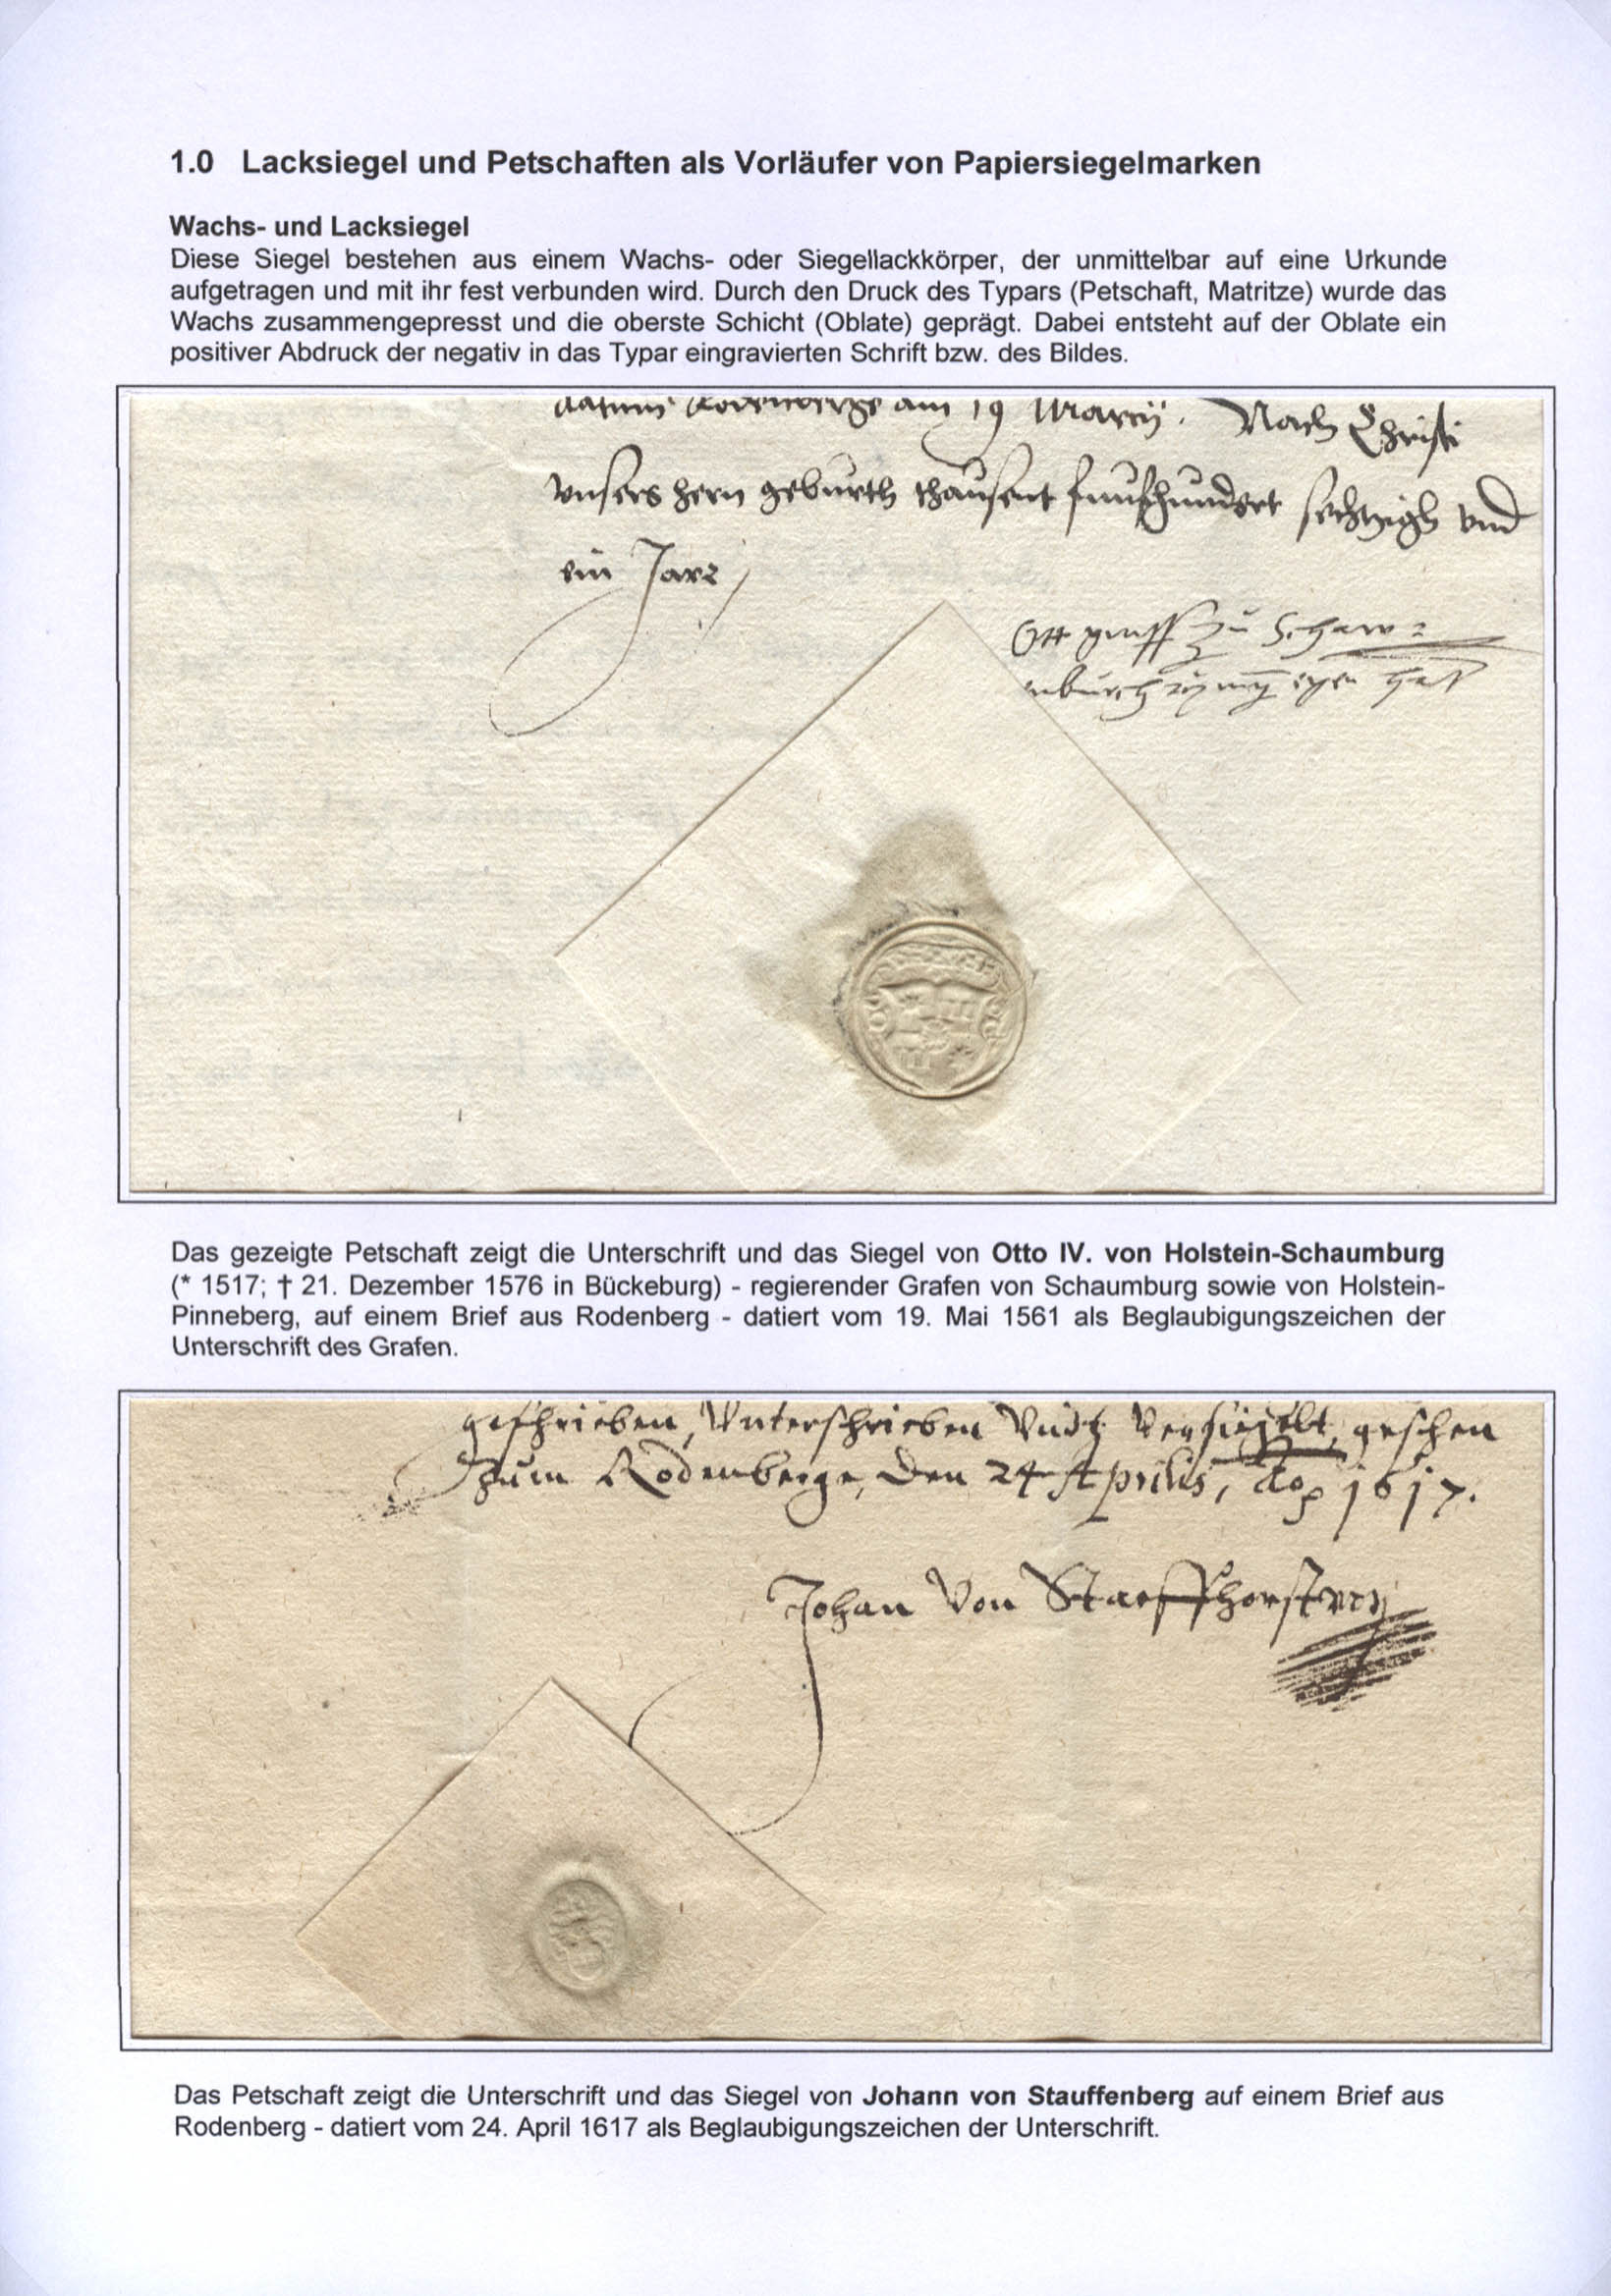 1.0 Lacksiegel und Petschaften als Vorläufer von Papiersiegelmarken
Wachs- und Lacksiegel
Diese Siegel bestehen aus einem Wachs- oder Siegellackkörper, der unmittelbar auf eine Urkunde
aufgetragen und mit ihr fest verbunden wird. Durch den Druck des Typars (Petschaft, Matritze) wurde das
Wachs zusammengepresst und die oberste Schicht (Oblate) geprägt. Dabei entsteht auf der Oblate ein
positiver Abdruck der negativ in das Typar eingravierten Schrift bzw. des Bildes.
datum Rodenberge am 19 Nach Christi
unsers hern geburth thausent funfhundert sechtzigh und
ein Jare
Ott graff zu Schaw=
enburch eyen
Das gezeigte Petschaft zeigt die Unterschrift und das Siegel von Otto IV. von Holstein-Schaumburg
(* 1517; † 21. Dezember 1576 in Bückeburg) - regierender Grafen von Schaumburg sowie von Holstein-
Pinneberg, auf einem Brief aus Rodenberg - datiert vom 19. Mai 1561 als Beglaubigungszeichen der
Unterschrift des Grafen.
geschrieben, Unterschrieben Undt Versiegelt, geschen
Zum Rodenberge, Den 24 Aprilis, Ao 1617.
Johan Von Staeffhorst
Das Petschaft zeigt die Unterschrift und das Siegel von Johann von Stauffenberg auf einem Brief aus
Rodenberg - datiert vom 24. April 1617 als Beglaubigungszeichen der Unterschrift.